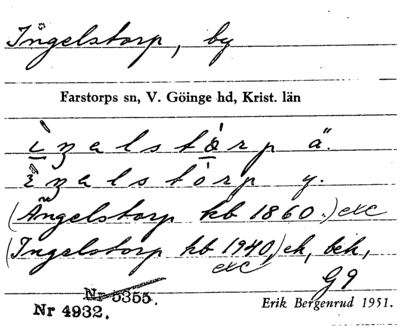 Ingelstorp, by
Farstorps sn, V. Göinge hd, Krist. län
ìŋalstòrp ä.
ìŋalstòrp y.
(Ängelstorp kb 1860.) exc
(Ingelstorp kb 1940,) eh, beh,
exc
G9
Nr 5355.
Nr 4932.
Erik Bergenrud 1951.